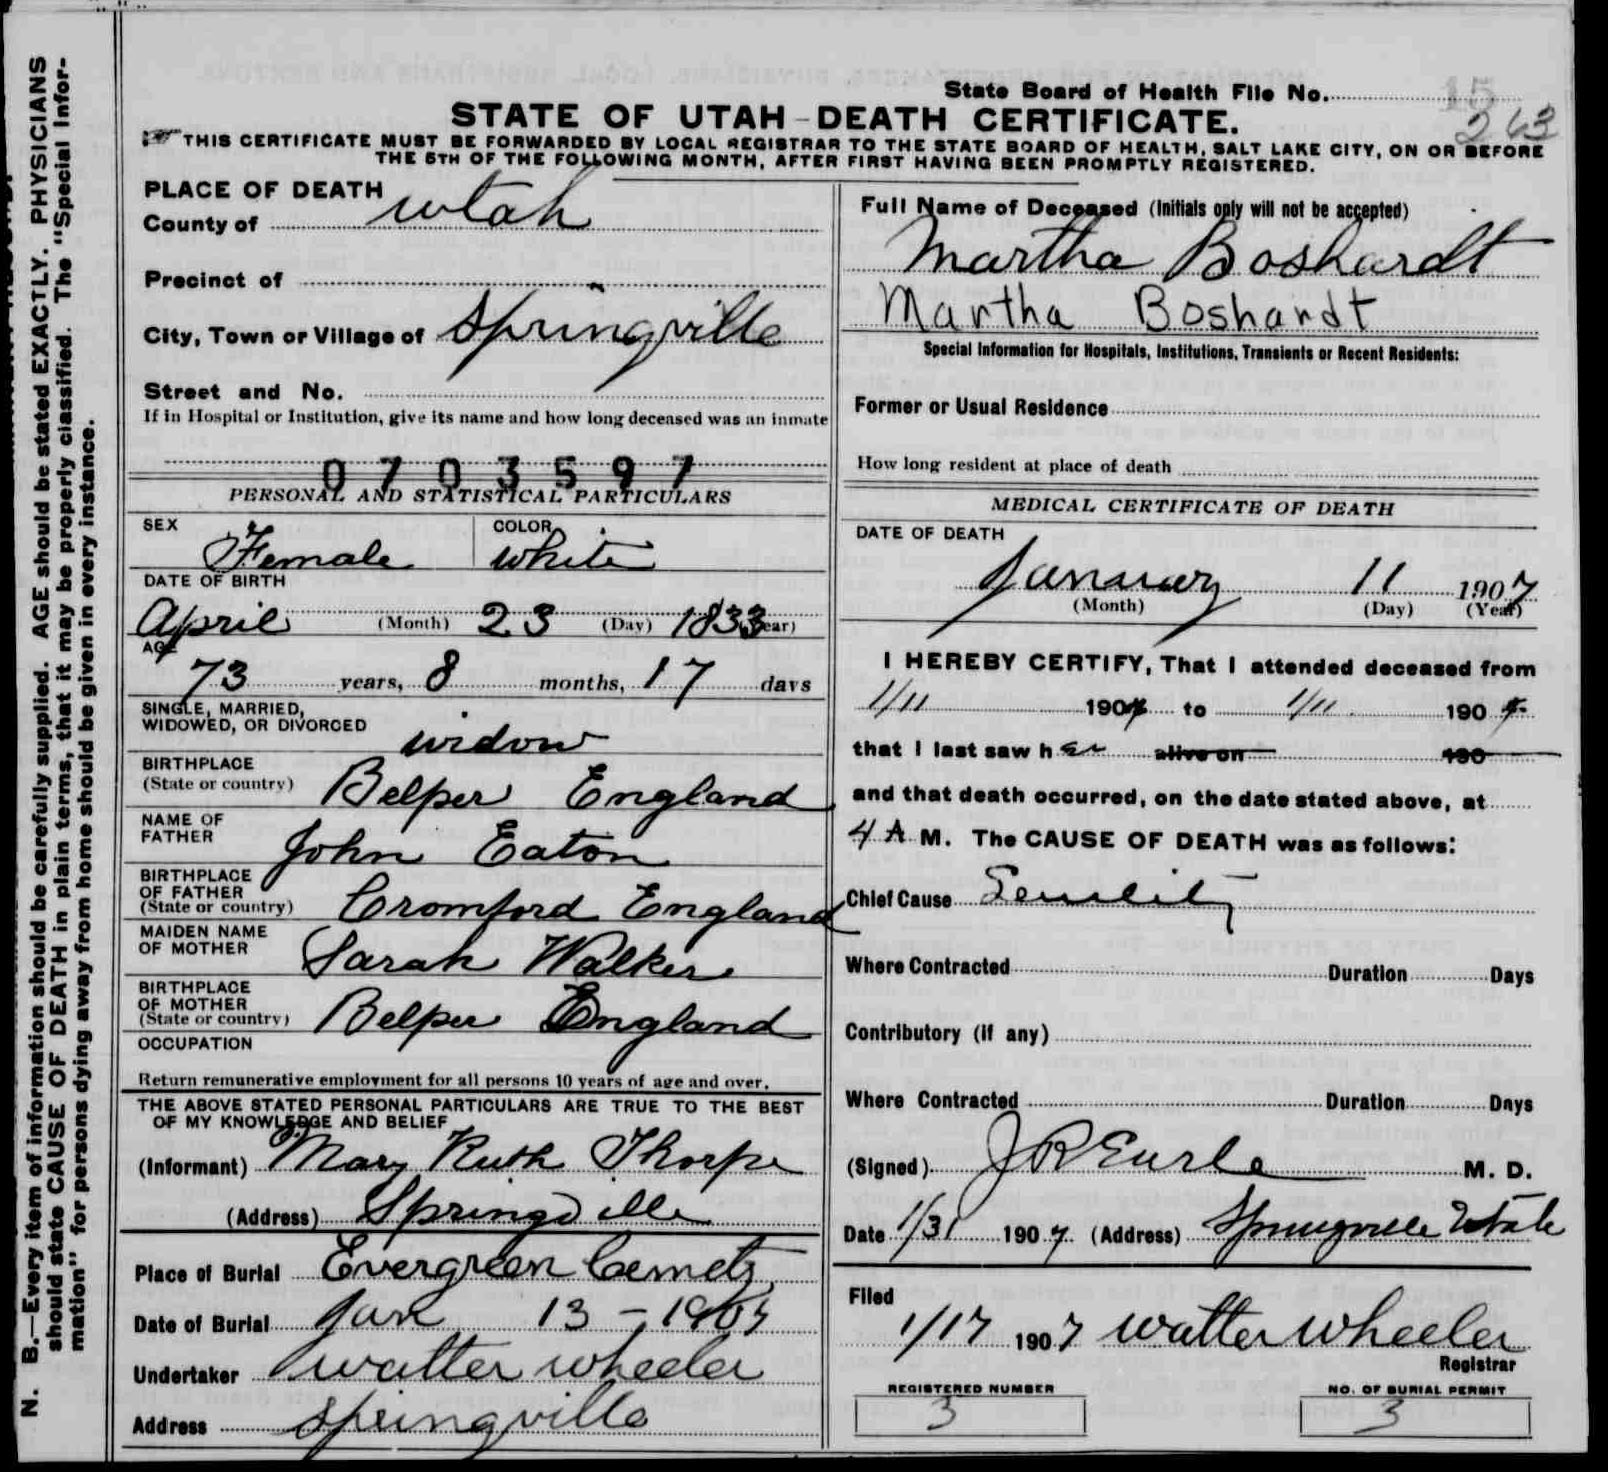 State Board of Health File No. 15
263
STATE OF UTAH—DEATH CERTIFICATE.
THIS CERTIFICATE MUST BE FORWARDED BY LOCAL REGISTRAR TO THE STATE BOARD OF HEALTH, SALT LAKE CITY, ON OR BEFORE
THE 5TH OF THE FOLLOWING MONTH, AFTER FIRST HAVING BEEN PROMPTLY REGISTERED.
N. B.—Every item of information should be carefully supplied. AGE should be stated EXACTLY. PHYSICIANS
should state CAUSE OF DEATH in plain terms, that it may be properly classified. The "Special Infor-
mation" for persons dying away from home should be given in every instance.
PLACE OF DEATH
County of Utah
Precinct of
City, Town or Village of Springville
Street and No.
If in Hospital or Institution, give its name and how long deceased was an inmate
0703597
PERSONAL AND STATISTICAL PARTICULARS
SEX Female COLOR white
DATE OF BIRTH
April (Month) 23 (Day) 1833 (Year)
AGE
73 years, 8 months, 17 days
SINGLE, MARRIED,
WIDOWED, OR DIVORCED widow
BIRTHPLACE
(State or country) Belper England
NAME OF
FATHER John Eaton
BIRTHPLACE
OF FATHER
(State or country) Cromford England
MAIDEN NAME
OF MOTHER Sarah Walker
BIRTHPLACE
OF MOTHER
(State or country) Belper England
OCCUPATION
Return remunerative employment for all persons 10 years of age and over.
THE ABOVE STATED PERSONAL PARTICULARS ARE TRUE TO THE BEST
OF MY KNOWLEDGE AND BELIEF
(Informant) Mary Ruth Thorpe
(Address) Springville
Place of Burial Evergreen Cemetz
Date of Burial Jan 13 - 1907
Undertaker Walter Wheeler
Address Springville
Full Name of Deceased (Initials only will not be accepted)
Martha Boshardt
Martha Boshardt
Special Information for Hospitals, Institutions, Transients or Recent Residents:
Former or Usual Residence
How long resident at place of death
MEDICAL CERTIFICATE OF DEATH
DATE OF DEATH
January 11 1907
(Month) (Day) (Year)
I HEREBY CERTIFY, That I attended deceased from
1/11 1907 to 1/11 1907
that I last saw her alive on 190
and that death occurred, on the date stated above, at
4 A M. The CAUSE OF DEATH was as follows:
Chief Cause Senility
Where Contracted Duration Days
Contributory (if any)
Where Contracted Duration Days
(Signed) J R Earle M. D.
Date 1/31 1907. (Address) Springville Utah
Filed
1/17 1907 Walter Wheeler
Registrar
REGISTERED NUMBER NO. OF BURIAL PERMIT
3 3